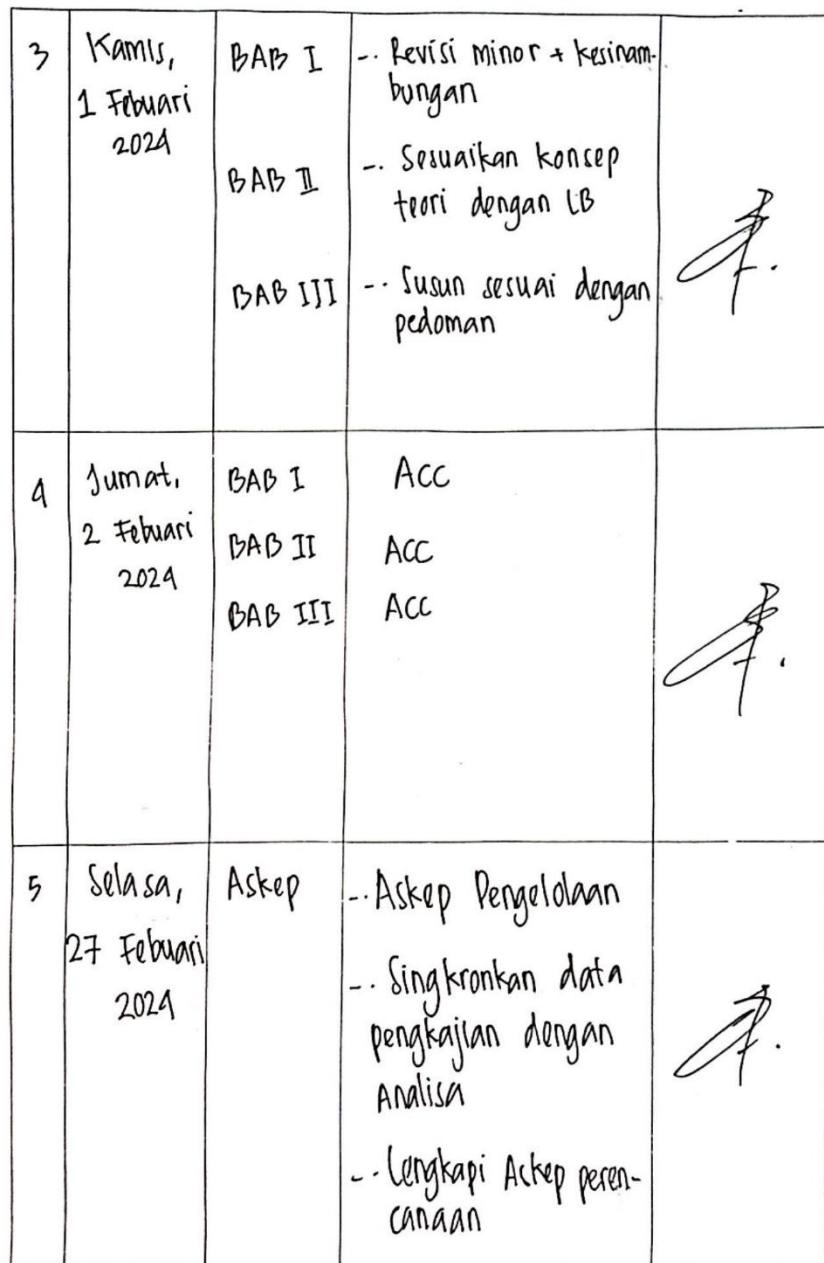 3
Kamis,
1 Febuari
2024
BAB I
-. Revisi minor + kesinam-
bungan
BAB II
-. Sesuaikan konsep
teori dengan LB
BAB III
-. Susun sesuai dengan
pedoman
4
Jumat,
2 Febuari
2024
BAB I
ACC
BAB II
ACC
BAB III
ACC
5
Selasa,
27 Febuari
2024
Askep
-. Askep Pengelolaan
-. Singkronkan data
pengkajian dengan
Analisa
-. Lengkapi Askep peren-
canaan